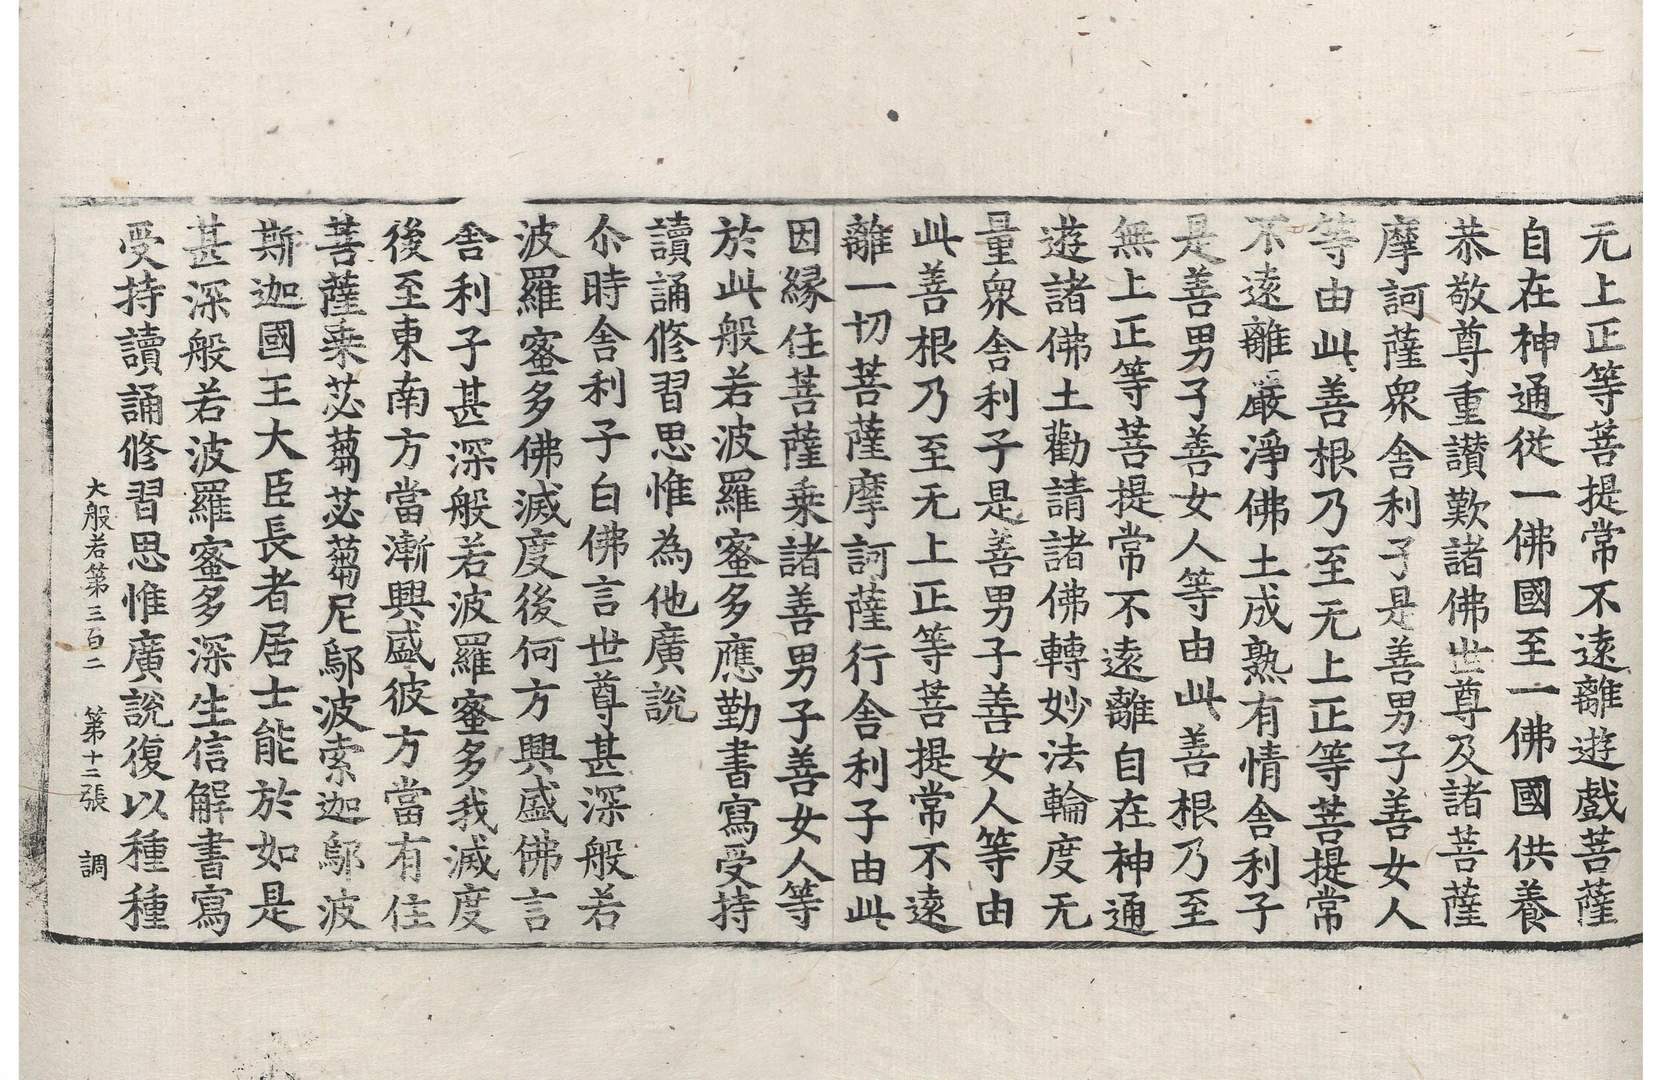 无上正等菩提常不遠離遊戲菩薩
自在神通從一佛國至一佛國供養
恭敬尊重讃歎諸佛世尊及諸菩薩
摩訶薩衆舍利子是善男子善女人
等由此善根乃至无上正等菩提常
不遠離嚴淨佛土成熟有情舍利子
是善男子善女人等由此善根乃至
無上正等菩提常不遠離自在神通
遊諸佛土勸請諸佛轉妙法輪度无
量衆舍利子是善男子善女人等由
此善根乃至无上正等菩提常不遠
離一切菩薩摩訶薩行舍利子由此
因縁住菩薩乗諸善男子善女人等
於此般若波羅蜜多應勤書寫受持
讀誦修習思惟為他廣説
尒時舍利子白佛言世尊甚深般若
波羅蜜多佛滅度後何方興盛佛言
舍利子甚深般若波羅蜜多我滅度
後至東南方當漸興盛彼方當有住
菩薩乗苾蒭苾蒭尼鄔波索迦鄔波
斯迦國王大臣長者居士能於如是
甚深般若波羅蜜多深生信解書寫
受持讀誦修習思惟廣説復以種種
大般若第三百二　第十二張　調